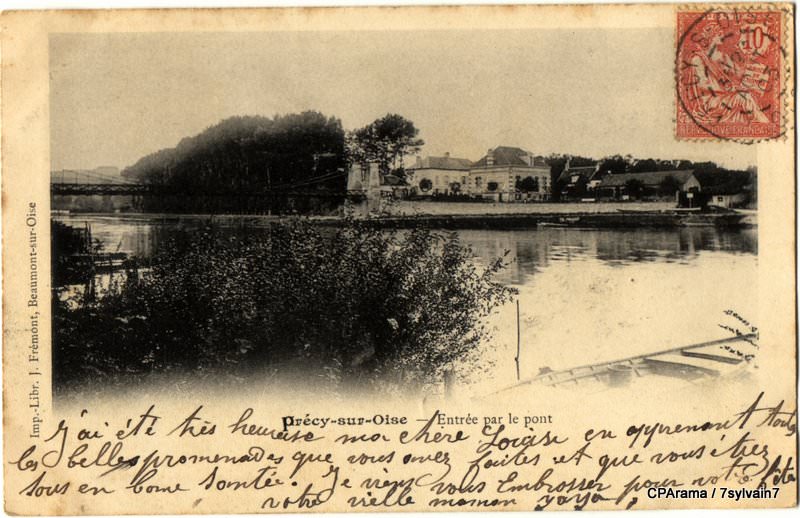 10
RÉPUBLIQUE FRANÇAISE
Imp.-Libr. J. Frémont, Beaumont-sur-Oise.
Précy-sur-Oise — Entrée par le pont
J'ai été très heureuse ma chère Louise en apprenant toutes
les belles promenades que vous avez faites et que vous étiez
tous en bonne santée. Je viens vous Embrosser pour votre fête
votre vielle maman yoyo
CPArama / 7sylvain7